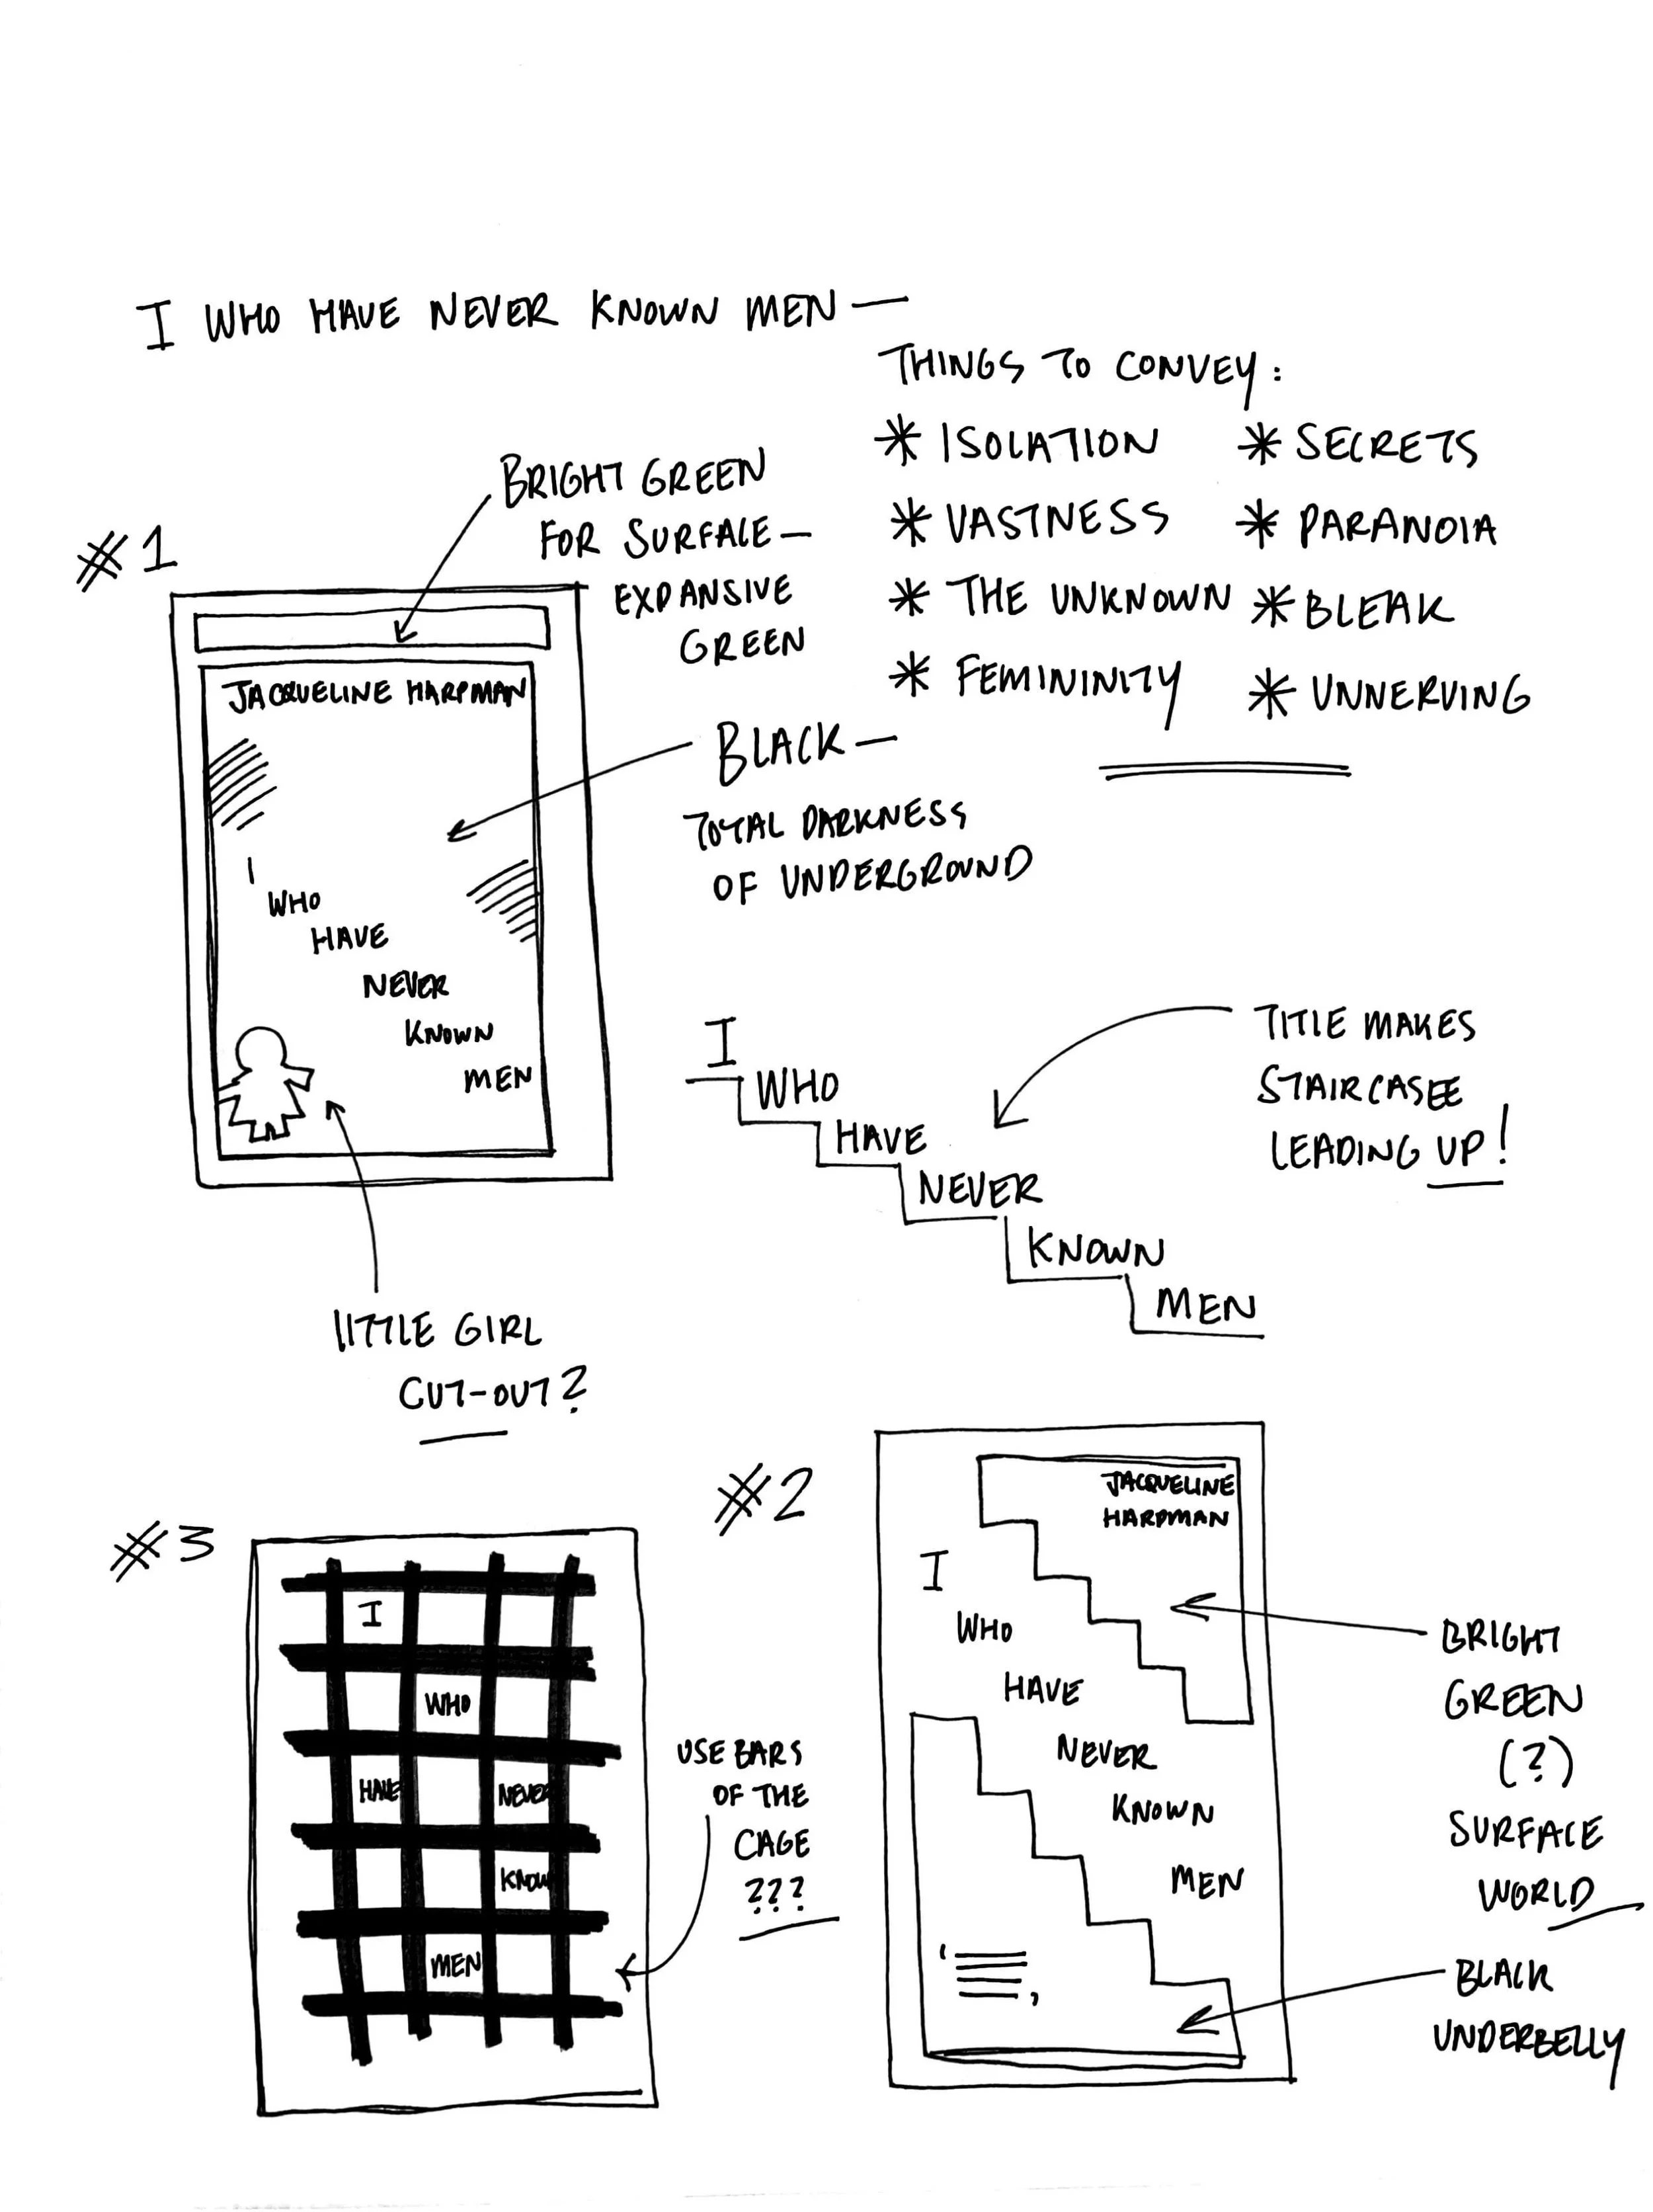 I WHO HAVE NEVER KNOWN MEN —
THINGS TO CONVEY:
* ISOLATION
* VASTNESS
* THE UNKNOWN
* FEMININITY
* SECRETS
* PARANOIA
* BLEAK
* UNNERVING
#1
BRIGHT GREEN
FOR SURFACE —
EXPANSIVE
GREEN
JACQUELINE HARPMAN
BLACK —
TOTAL DARKNESS
OF UNDERGROUND
I
WHO
HAVE
NEVER
KNOWN
MEN
LITTLE GIRL
CUT-OUT?
I
WHO
HAVE
NEVER
KNOWN
MEN
TITLE MAKES
STAIRCASEE
LEADING UP!
#2
JACQUELINE
HARPMAN
I
WHO
HAVE
NEVER
KNOWN
MEN
BRIGHT
GREEN
(?)
SURFACE
WORLD
BLACK
UNDERBELLY
#3
I
WHO
HAVE NEVER
KNOW
MEN
USE BARS
OF THE
CAGE
???